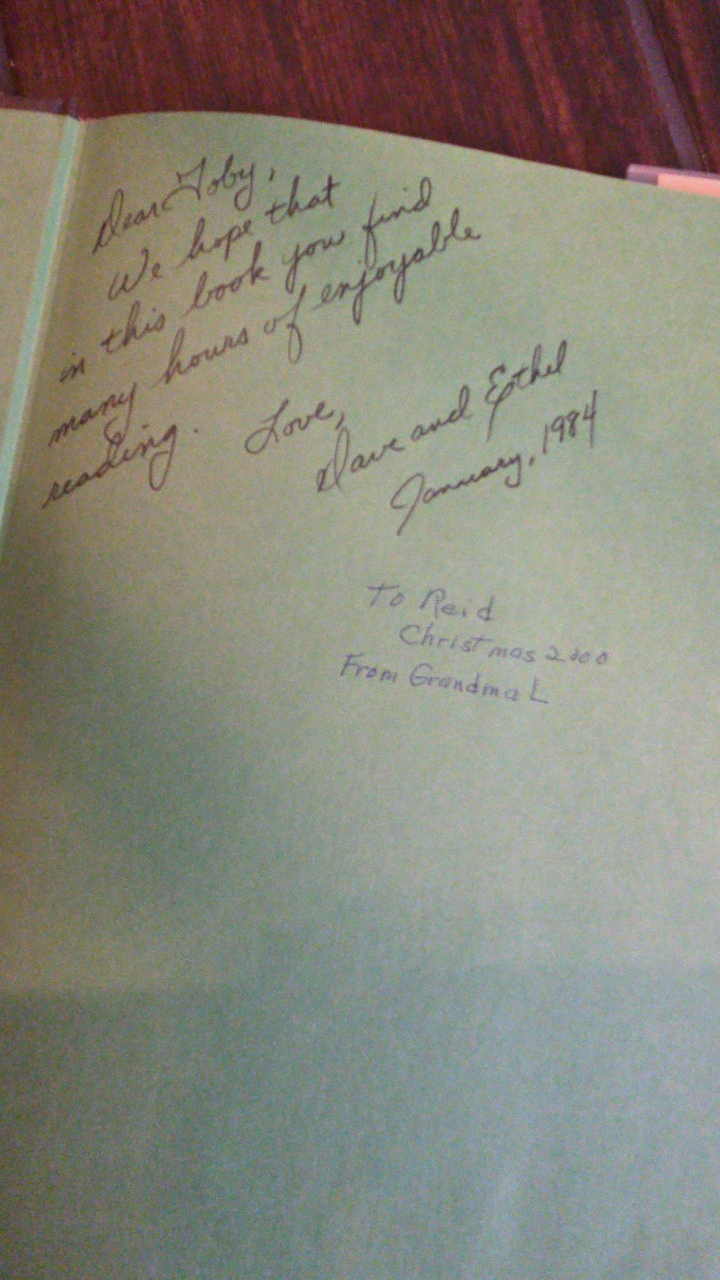 Dear Toby,
We hope that
in this book you find
many hours of enjoyable
reading.
Love,
Dave and Ethel
January, 1984
To Reid
Christmas 2000
From Grandma L